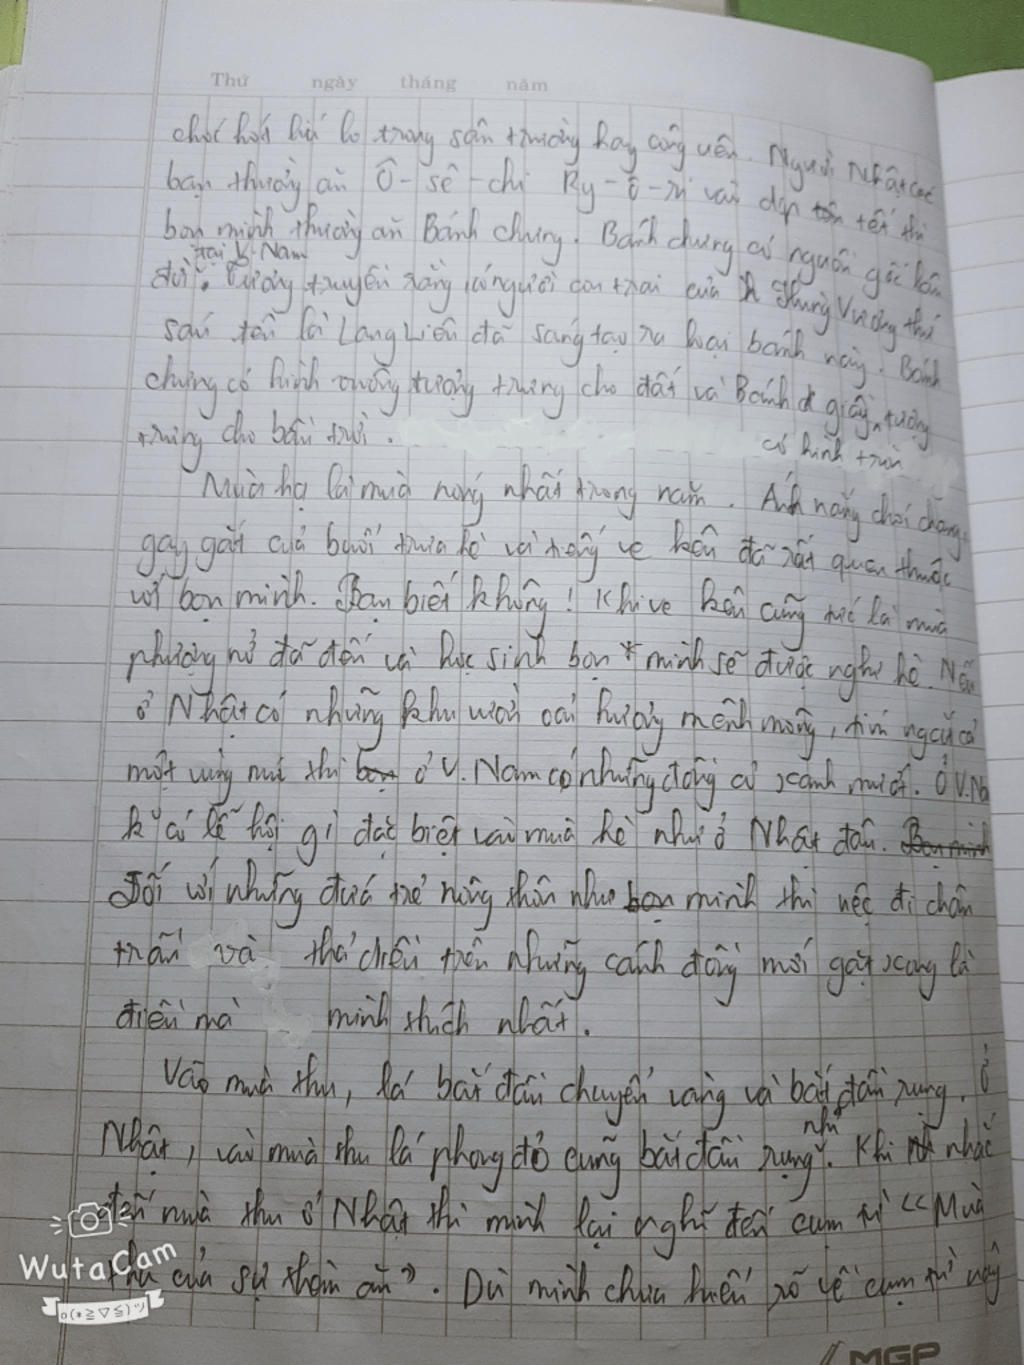 Thứ ngày tháng năm
trong sân trường hay công viên. Người Nhật các
bạn thường ăn Ô-sê-chi Ry-ô-ri vào dịp tết thì
bọn mình thường ăn Bánh chưng. Bánh chưng có nguồn gốc
tại V.Nam
đời. Tương truyền rằng, có người con trai của Hùng Vương thứ
sáu tên là Lang Liêu đã sáng tạo ra loại bánh này. Bánh
chưng có hình vuông tượng trưng cho đất và Bánh giầy tượng
trưng cho bầu trời.
có hình tròn
Mùa hạ là mùa nóng nhất trong năm. Ánh nắng chói chang,
gay gắt của buổi trưa hè và tiếng ve kêu đã rất quen thuộc
với bọn mình. Bạn biết không! Khi ve kêu cũng tức là mùa
phượng nở đã đến và học sinh bọn mình sẽ được nghỉ hè. Nếu
ở Nhật có những khu vườn oải hương mênh mông, tím ngắt cả
một vùng núi thì ở V.Nam có những đồng cỏ xanh mướt. Ở V.Na
k° có lễ hội gì đặc biệt vào mùa hè như ở Nhật đâu. Bọn mình
Đối với những đứa trẻ nông thôn như bọn mình thì việc đi chân
trần và thả diều trên những cánh đồng mới gặt xong là
điều mà mình thích nhất.
Vào mùa thu, lá bắt đầu chuyển vàng và bắt đầu rụng. Ở
Nhật, vào mùa thu lá phong đỏ cũng bắt đầu rụng nhỉ. Khi nhắc
đến mùa thu ở Nhật thì mình lại nghĩ đến cụm từ "Mùa
thu của sự thèm ăn". Dù mình chưa hiểu rõ về cụm từ này
WutaCam
o(*≧▽≦)ツ
MGP